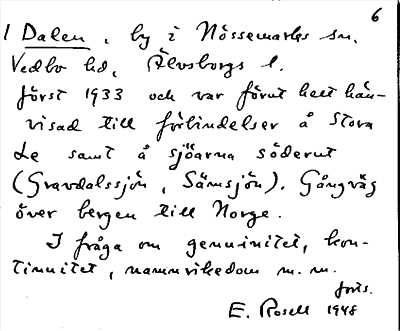 6
1 Dalen, by i Nössemarks sn.
Vedbo hd, Älvsborgs l.
först 1933 och var förut helt hän-
visad till förbindelser å Stora
Le samt å sjöarna söderut
(Gravdalssjön, Sämsjön). Gångväg
över bergen till Norge.
I fråga om genuinitet, kon-
tinuitet, namnrikedom m.m.
forts.
E. Rosell 1948